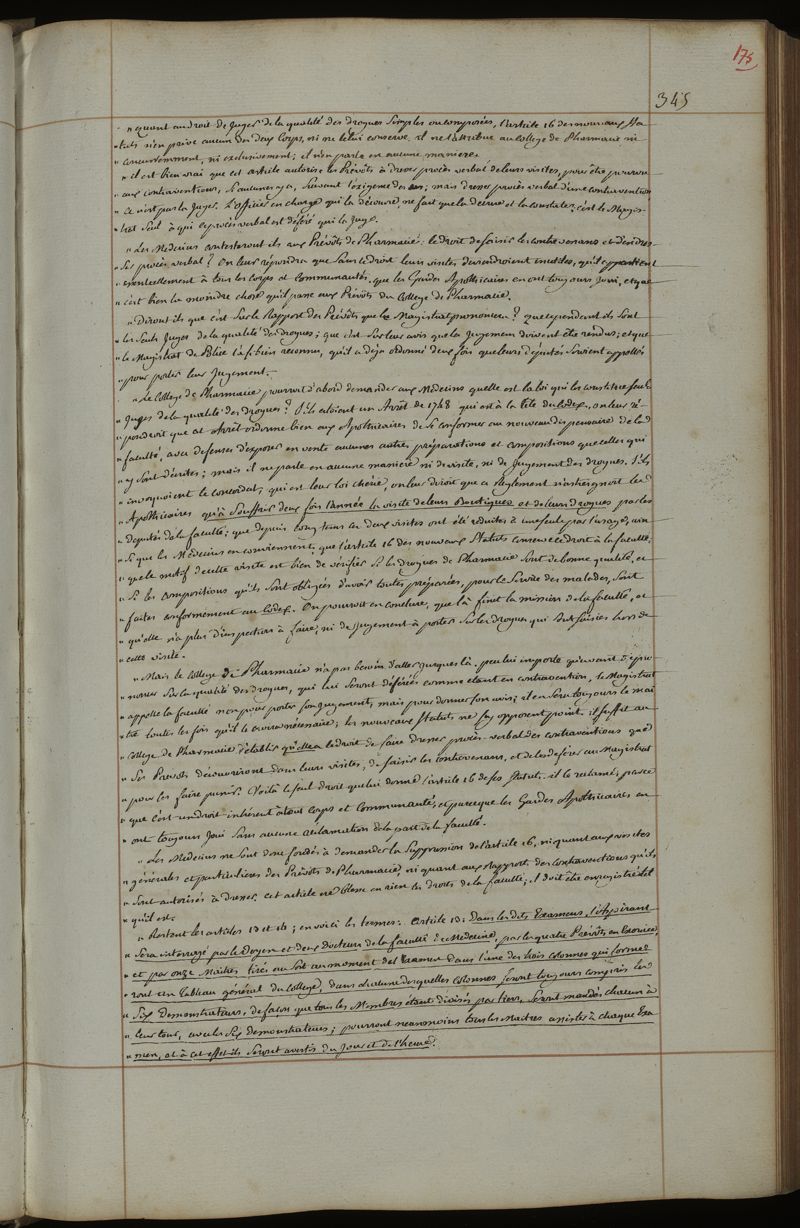 175
345
" Quant au droit de Juger de la qualité des drogues Simples ou composées, l'article 16 des nouveaux Sta-
" tuts n'en prive aucun des deux Corps, ni ne le lui conserve, il ne l'attribue au College de Pharmacie ni
" concurremment, ni exclusivement; il n'en parle en aucune maniere.
" il est bien vrai que cet article autorise les Prévôts à dresser procès verbal de leurs visites, pour être pourvu
" aux contraventions, si aucunes y a, suivant l'exigence des cas; mais dresser procès verbal d'une contravention
" ce n'est pas la Juger. L'officier en charge qui la découvre, ne fait que la décrire et la constater; c'est le Magis-
" trat Seul à qui ce procès verbal est déféré qui la Juge.
" Les Médecins contesteront ils aux Prévôts de Pharmacie le droit de Saisir les contrevenans et d'en dres-
" Ser procès verbal? On leur répondra que Sans ce droit leurs visites deviendroient inutiles, qu'il appartient
" essentiellement à tous les corps et Communautés, que les Gardes Apothicaires en ont toujours Joui, et que
" c'est bien la moindre chose qu'il passe aux Prévôts du College de Pharmacie.
" Diront ils que c'est Sur le Rapport des Prévôts que le Magistrat prononcera? que cependant ils Sont
" les Seuls Juges de la qualité des drogues; que c'est Sur leur avis que les Jugemens doivent être rendus; et que
" le Magistrat de Police l'a si bien reconnu, qu'il a déja ordonné deux fois que leurs députés Seroient appellés
" pour porter leur Jugement.
" Le College de Pharmacie pourroit d'abord demander aux Médecins quelle est la loi qui les constitue Seuls
" Juges de la qualité des drogues? S'ils citoient un Arrêt de 1748 qui est à la tête du Codex, on leur ré-
" pondroit que cet Arrêt ordonne bien aux Apothicaires de Se conformer au nouveau dispensaire de la
" faculté, avec défenses d'exposer en vente aucunes autres préparations et compositions que celles qui
" y Sont décrites; mais il ne parle en aucune maniere ni de visite, ni de Jugement des drogues. S'ils
" invoquoient le concordat, qui est leur loi chérie, on leur diroit que ce Reglement n'astreignoit les
" Apothicaires qu'à Souffrir deux fois l'année la visite de leurs Boutiques et de leurs drogues par les
" députés de la faculté; que depuis long tems ces deux visites ont été réduites à une Seule par l'usage, ain-
" Si que les Médecins en conviennent; que l'article 16 des nouveaux Statuts conserve ce droit à la faculté;
" que le motif de cette visite est bien de vérifier Si les drogues de Pharmacie Sont de bonne qualité, et
" Si les compositions qu'ils Sont obligés d'avoir toutes préparées, pour le Service des malades, Sont
" faites conformement au Codex. On pourroit en conclure, que là finit la mission de la faculté, et
" qu'elle n'a plus d'inspection à faire, ni de Jugement à porter Sur les drogues qui Sont Saisies hors de
" cette visite.
" Mais le College de Pharmacie n'a pas besoin d'aller jusques là. peu lui importe qu'avant de pro-
" noncer Sur la qualité des drogues, qui lui Seront déférées comme étant en contravention, le Magistrat
" appelle la faculté non pour porter Son Jugement, mais pour donner Son avis; il en Sera toujours le mai
" tre toutes les fois qu'il le croira nécessaire; les nouveaux Statuts ne S'y opposent point. il Suffit au
" College de Pharmacie d'établir qu'elle a le droit de faire dresser procès-verbal des contraventions que
" Ses Prévôts découvriront dans leurs visites, de Saisir les contrevenans, et de les déférer au Magistrat
" pour les faire punir. Voilà le Seul droit que lui donne l'article 16 de Ses Statuts. il le réclame, parce
" que c'est un droit inhérent à tout corps et Communauté, et parceque les Gardes Apothicaires en
" ont toujours Joui Sans aucune réclamation de la part de la faculté.
" Les Médecins ne Sont donc fondés à demander la Suppression de l'article 16, ni quant aux visites
" générales et particulieres des Prévôts de Pharmacie, ni quant aux Rapports des contraventions qu'ils
" Sont autorisés à dresser. Cet article ne blesse en rien les droits de la faculté; il doit être enregistré tel
" qu'il est.
" Restent les articles 13 et 14; en voici les termes. Article 13: Dans les dits Examens, l'Aspirant
" Sera interrogé par le Doyen et deux Docteurs de la faculté de Médecine, par les quatre Prévôts en Exercice,
" et par onze Maitres tirés au Sort au moment de l'Examen dans l'une des trois colonnes qui forme-
" ront un Tableau général du College, dans chacune desquelles colonnes Seront toujours compris les
" Six Demonstrateurs, de façon que tous les Membres étant divisés par tiers, Seront mandés chacun à
" leur tour, avec les Six demonstrateurs; pourront néanmoins tous les Maitres assister à chaque Exa
" men, et à cet effet ils Seront avertis du Jour et de l'heure.